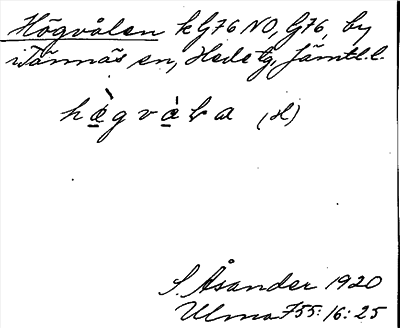 Högvålen k G76 NO, G76, by
i Tännäs sn, Hede tg, Jämtl. l.
hæ̀gvàla (H)
S. Åsander 1920
Ulma 755:16:25